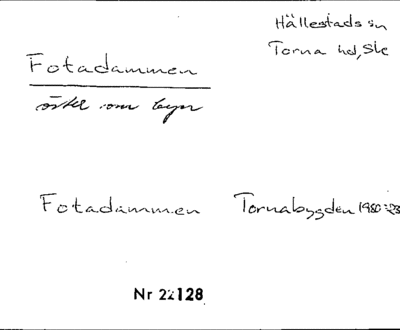 Hällestads sn
Torna hd, Ske
Fotadammen
öster om byn
Fotadammen Tornabygden 1980:23
Nr 22128